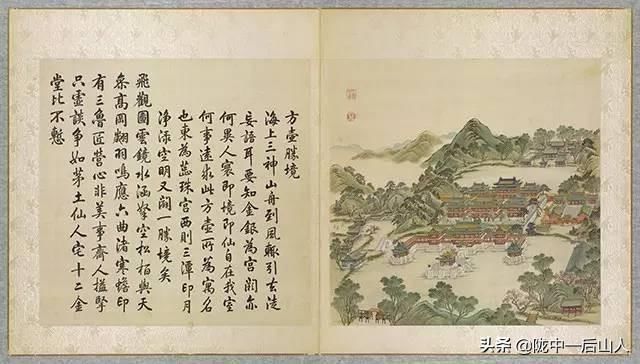 方壺勝境
海上三神山舟到風輒引去徒
妄語耳要知金銀為宮闕亦
何異人寰即境即仙自在我室
何事遠求此方壺所為寓名
也東為蕊珠宮西則三潭印月
淨淥空明又闢一勝境矣
飛觀圖雲鏡水涵拏空松柏與天
參高岡翽羽鳴應六曲渚寒蟾印
有三魯匠營心非美事齊人搤掔
只虛談爭如茅土仙人宅十二金
堂比不慙
头条 @陇中一后山人